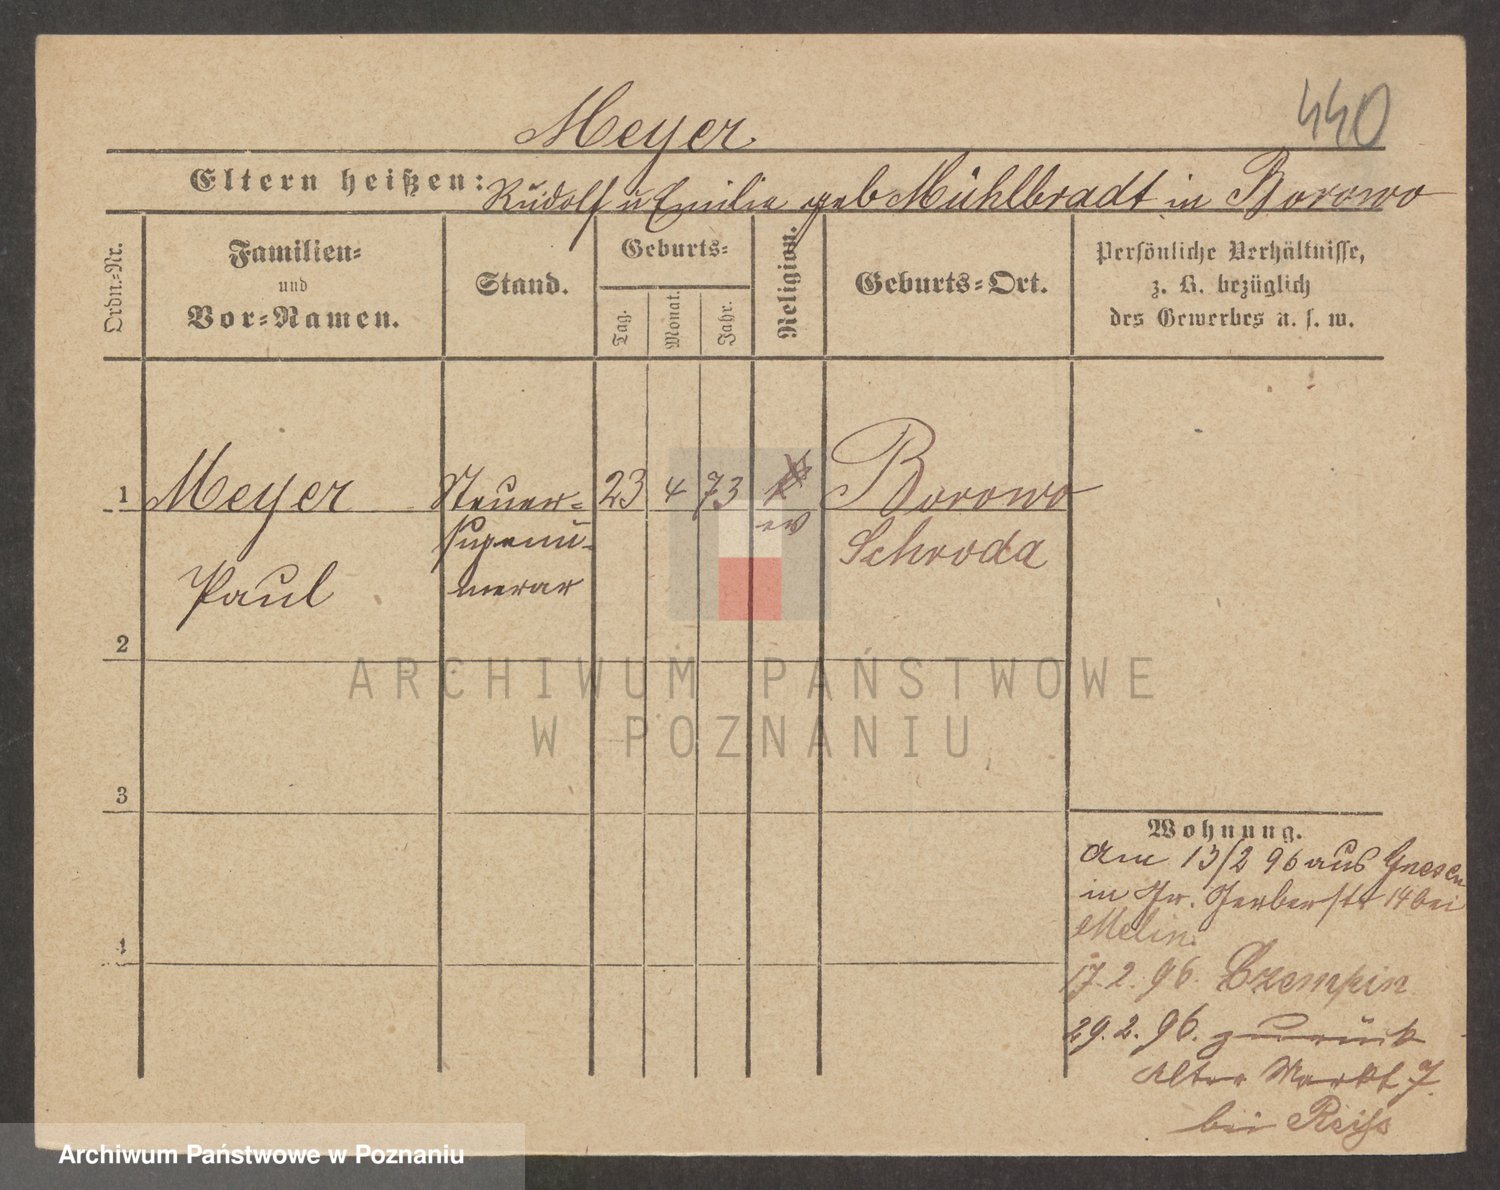 440
Meyer
Eltern heißen: Rudolf u Emilie geb Mühlbradt in Borowo
Ordn.-Nr.
Familien-
und
Vor-Namen.
Stand.
Geburts-
Tag.
Monat.
Jahr.
Religion.
Geburts-Ort.
Persönliche Verhältnisse,
z. B. bezüglich
des Gewerbes u. s. w.
1 Meyer Steuer- 23 4 73 ev Borowo
supernu- Schroda
Paul merar
2
3
4
ARCHIWUM PAŃSTWOWE
W POZNANIU
Wohnung.
Am 13/2 96 aus Gnesen
in Gr. Gerberstr 14 bei
Melin.
17.2.96. Czempin
29.2.96. zurück
Alter Markt 7.
bei Reiß
Archiwum Państwowe w Poznaniu